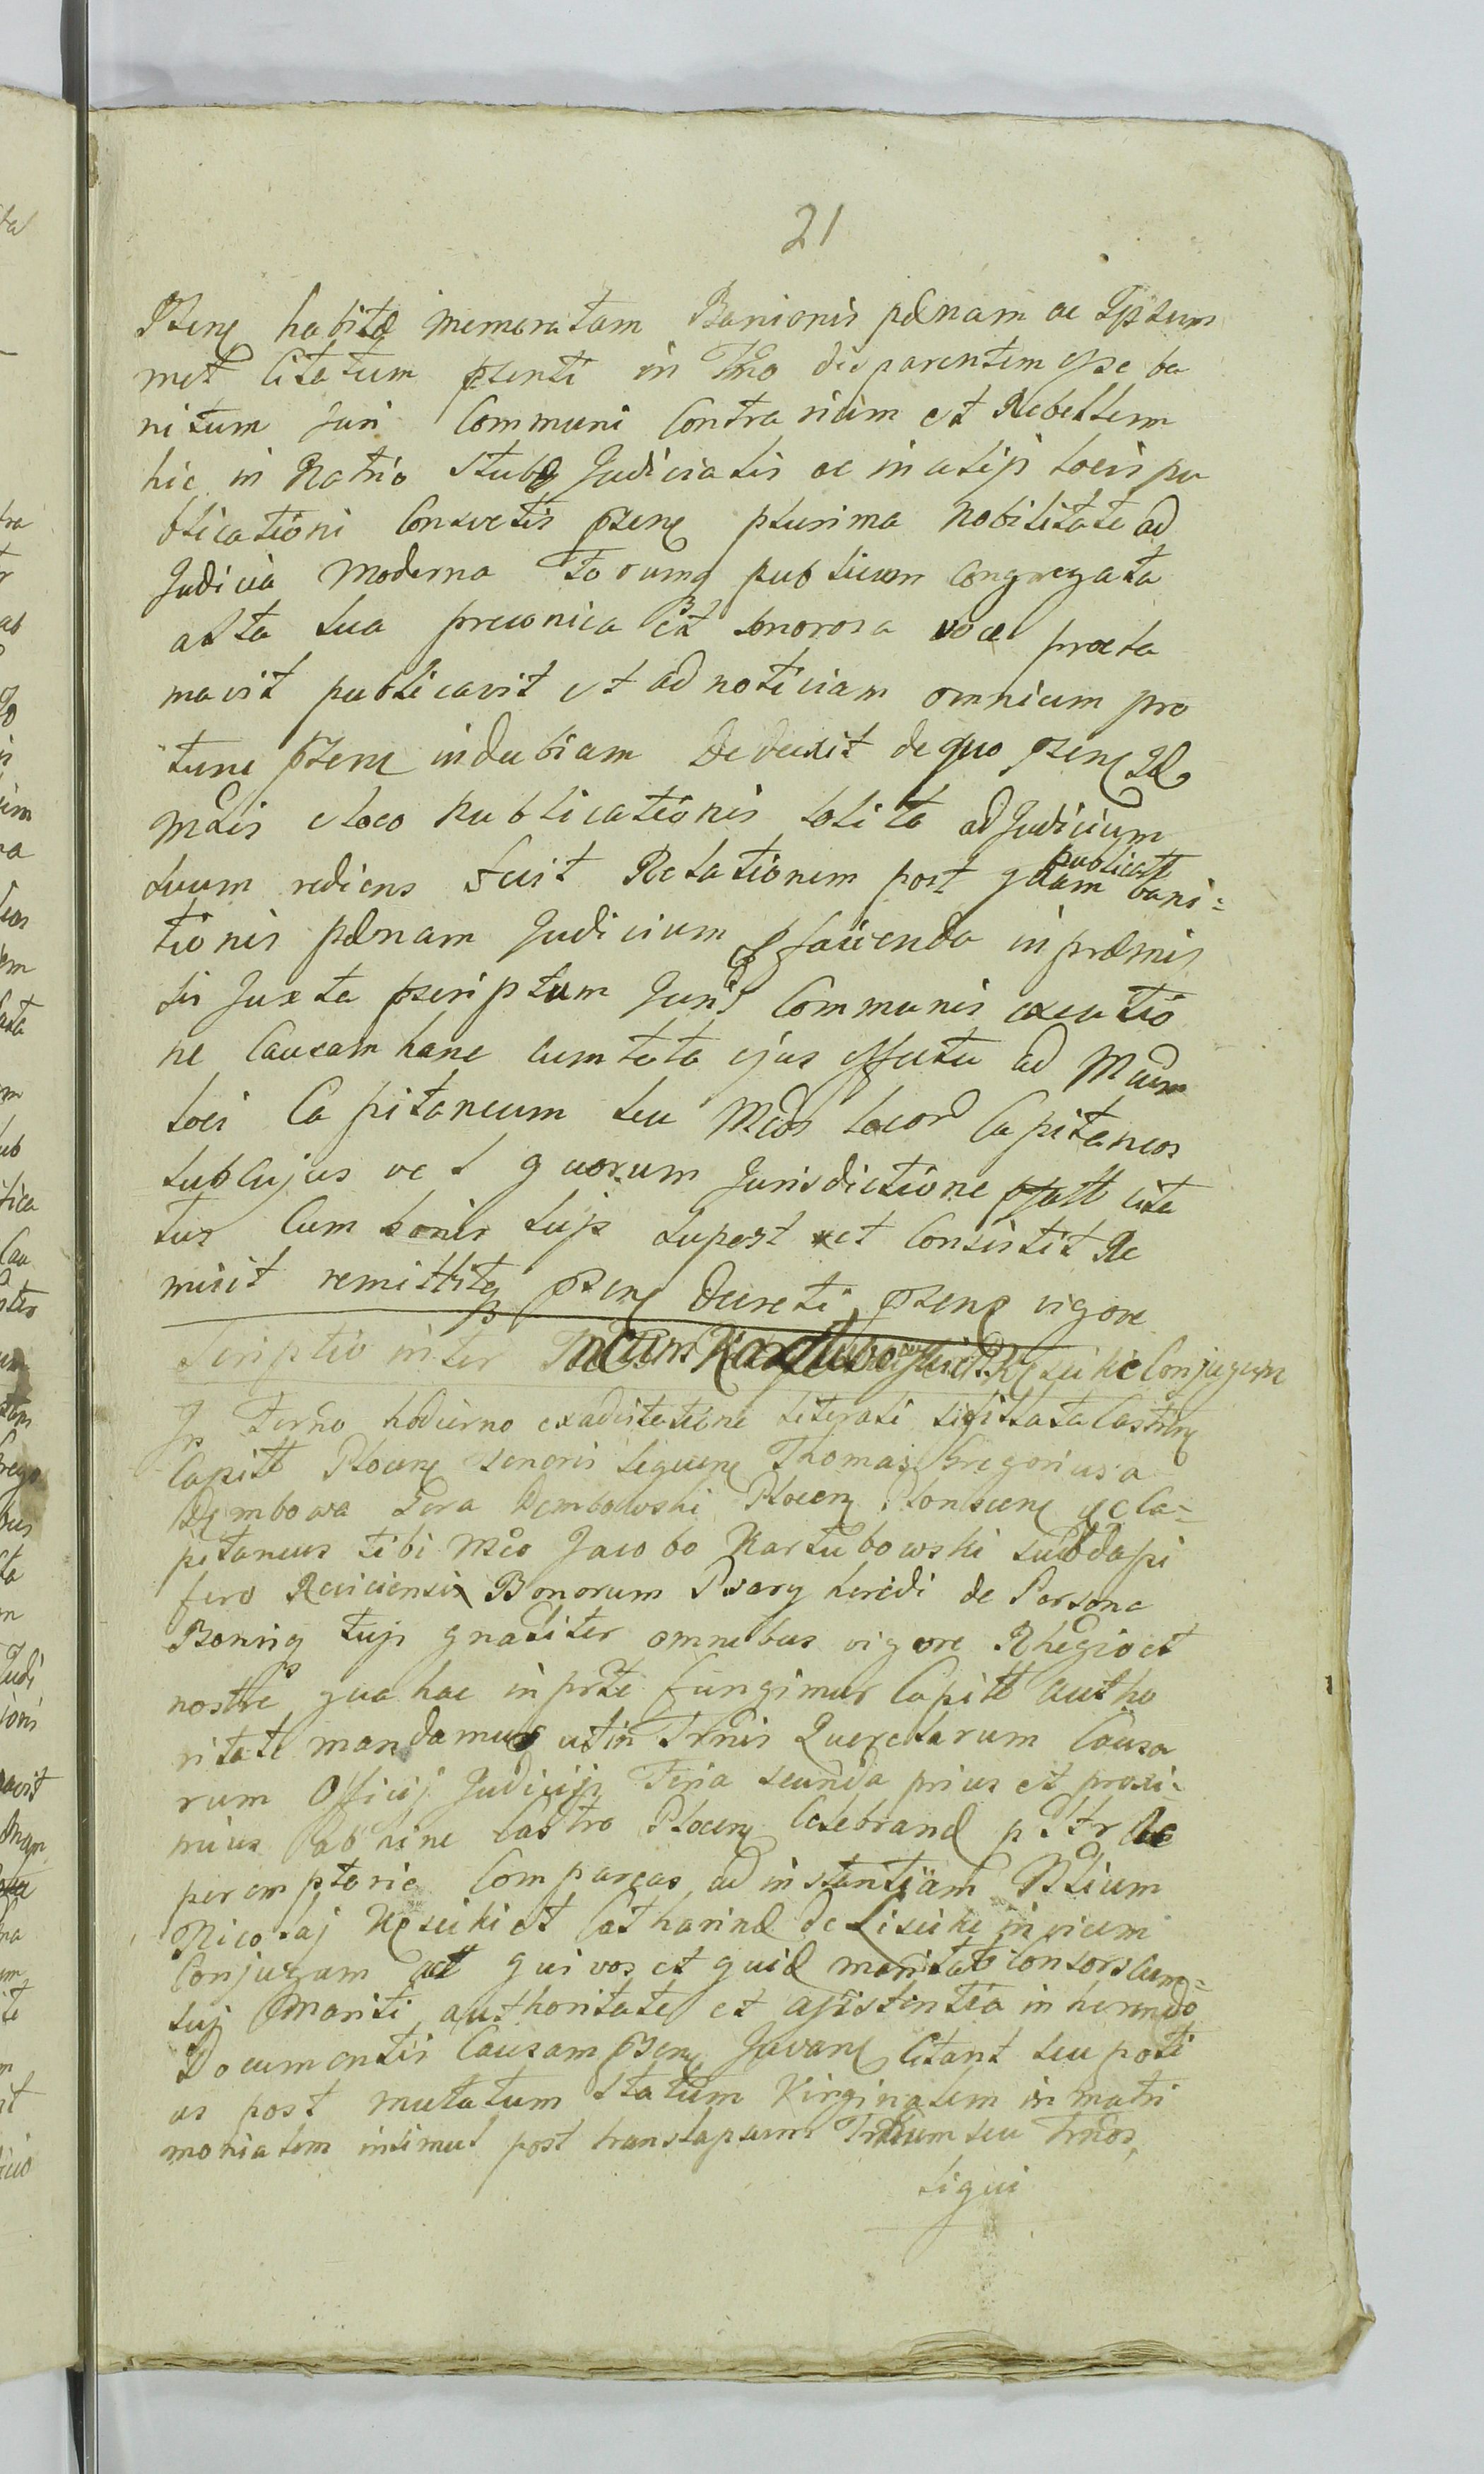 21
Pzenę habitæ memoratam Banionis pœnam ac Ipsum
met Citatum pzenti in Tno disparentem esse ba
nitum Juri Communi Contrarium et Rebellem
hic in Patrio Stubæ Judicialis ac in alijs locis pu
blicationi Consvetis pzenę plurima Nobilitate ad
Judicia Moderna Forumq publicum Congregata
alta sua preconica et sonorosa voce procla
mavit publicavit et ad noticiam omnium pro
tunc pzenę indubiam Deduxit de quo pzenę
Mdis e loco Publicationis solito ad Judicium
suum rediens fecit Relationem post quam publicatt bani=
tionis pœnam Judicium facienda in præmis
sis Juxta pscriptum Juris Communis executio
ne Causam hanc cum toto ejus effectu ad Mcum
loci Capitaneum seu Mcos locor Capitaneos
sub cujus vel quorum Jurisdictione pfatt cita
tus Cum bonis suis superest et Consistit Re
misit remittitq pzenę Decreti pzenę vigore
Scriptio inter Conjugum
In Termo hodierno ex a citatione literali sigillata Castren
Capitt Plocenę tenoris sequenę Thomas Gregorius a
Dembowa Gora Dembowski Plocenę Plonscenę &c Ca=
pitaneus tibi Mco Jacobo Karlubowski subdapi
fero Raviciensi Bonorum Psary heredi de Persona
Bonisq tuis gnaliter omnibus vigore Rhegio et
nostre qua hac in prte fungimur Capitt autho
ritate mandamus ut in Trnis Querelarum Causa
rum Officij Judicijs Feria secunda prius et proxi=
mius ab hinc Castro Plocenę Celebrand
peremptorie Compareas ad instantiam Nlium
Nicolaj et Catharinæ de invicem
Conjugum qui vos et quid maritat Consors cum=
sui Mariti authoritate et assistentia in herendo
Documentis Causam pzenę Juvanę Citant seu poti
us post mutatum statum Virginalem in matri
monialem insimul post translapsum Trnum seu Trnos,
siqui